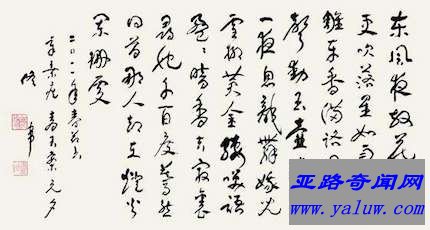 东风夜放花
更吹落星如雨
雕车香满路
声动玉壶
一夜鱼龙舞蛾儿
雪柳黄金缕笑语
盈々暗香去众里
寻他千百度蓦然
回首那人却在灯火
阑珊处
二〇一一年春节书
辛弃疾青玉案元夕
亚路奇闻网
www.yaluw.com